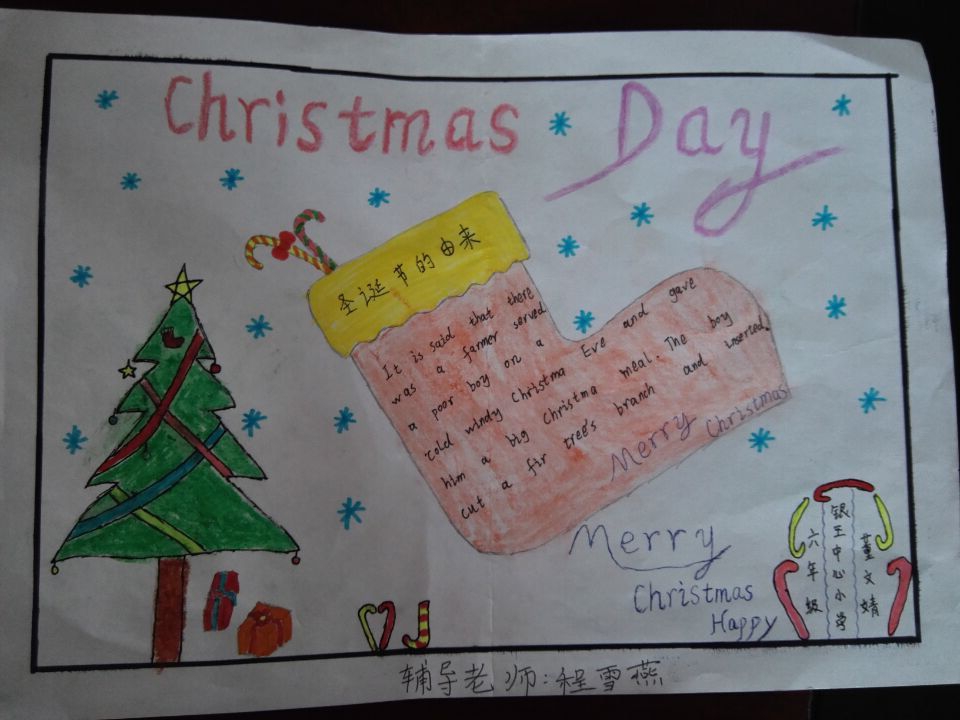 Christmas Day
圣诞节的由来
It is said that there
was a farmer served
a poor boy on a
cold windy Christma Eve and gave
him a big Christma meal. The boy
cut a fir tree's branch and inserted.
Merry Christmas
Merry
Christmas
Happy
六年级
银王中心小学
董文婧
辅导老师:程雪燕